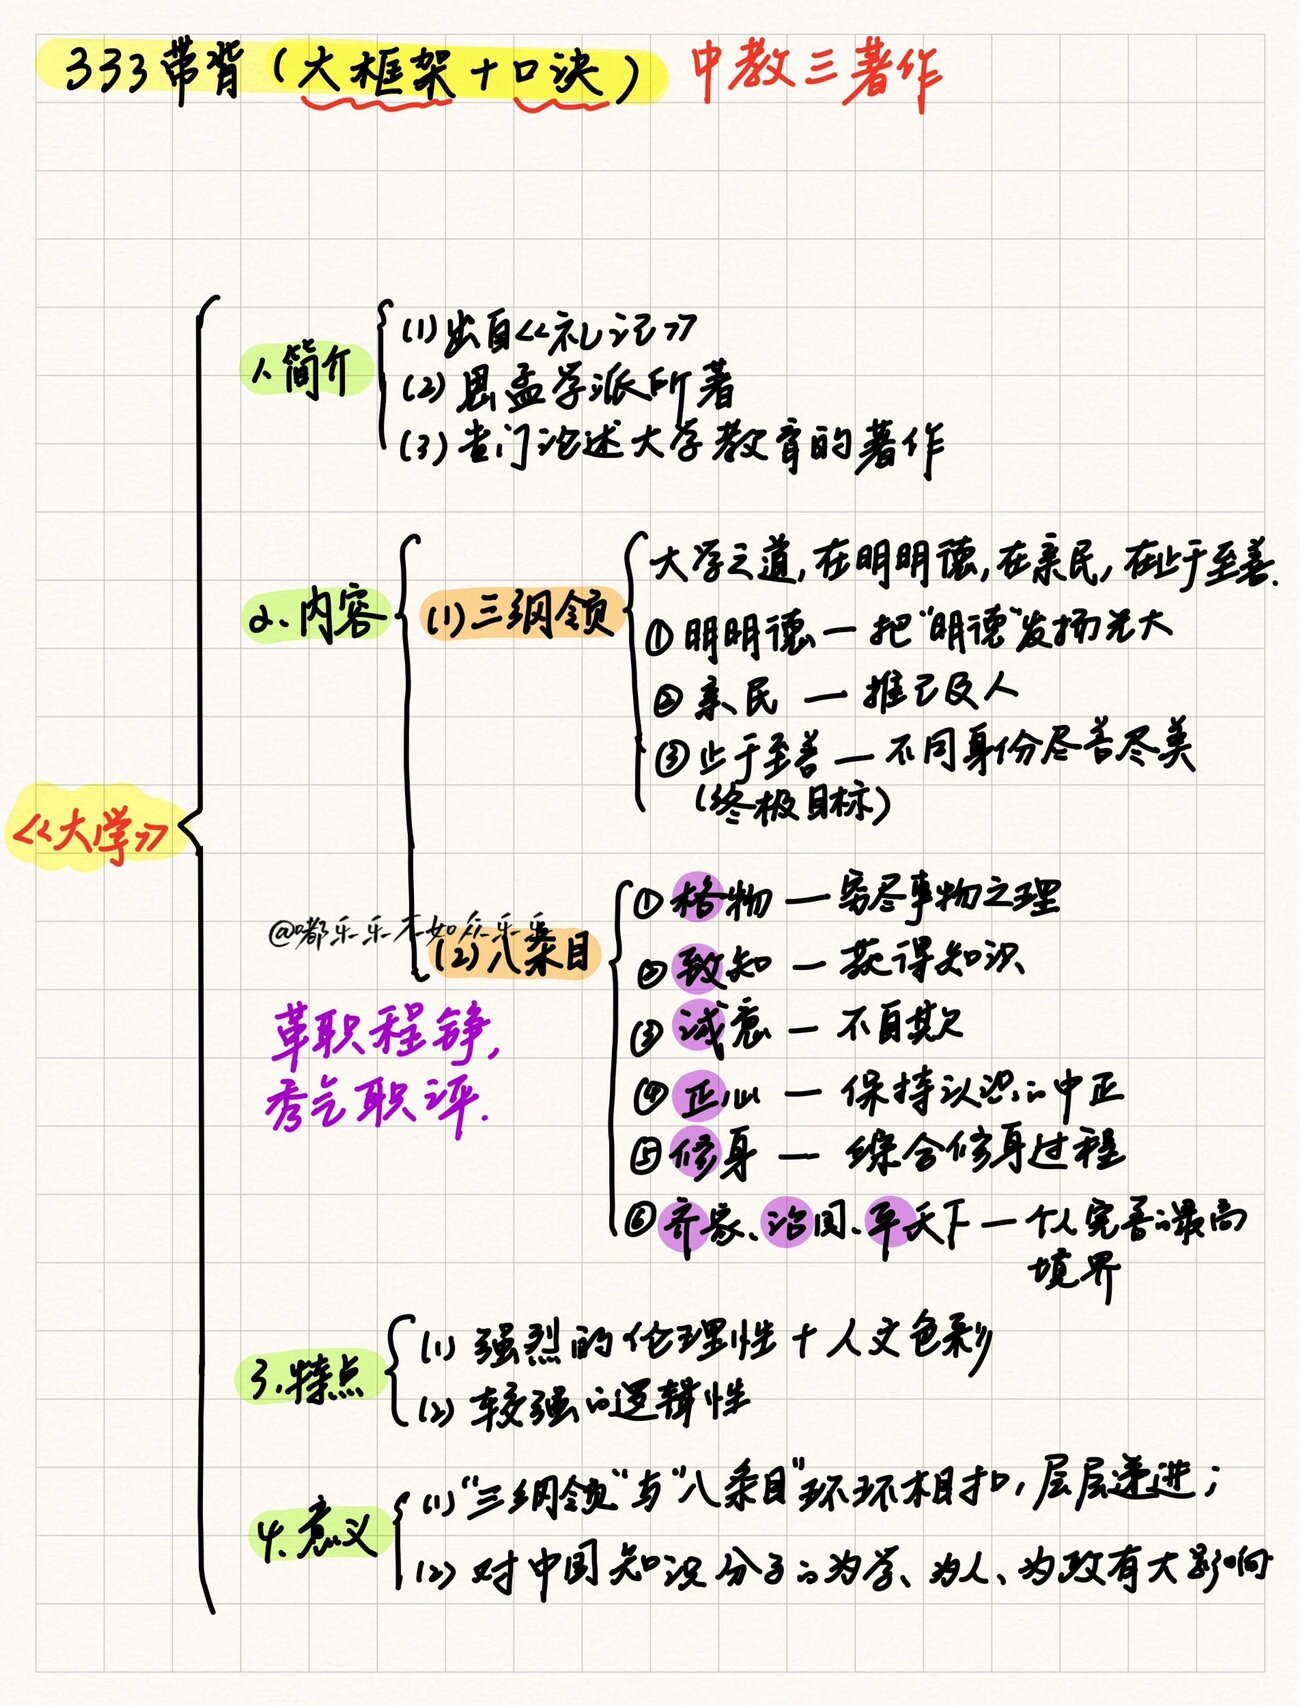 333带背(大框架+口诀) 中教三著作
《大学》
1、简介
(1)出自《礼记》
(2)思孟学派所著
(3)专门论述大学教育的著作
2、内容
(1)三纲领
大学之道,在明明德,在亲民,在止于至善.
①明明德—把“明德”发扬光大
②亲民—推己及人
③止于至善—不同身份尽善尽美
(终极目标)
@嘟乐乐不如众乐乐
(2)八条目
革职程铮,
秀气职评.
①格物—穷尽事物之理
②致知—获得知识
③诚意—不自欺
④正心—保持认识的中正
⑤修身—综合修身过程
⑥齐家、治国、平天下—个人完善的最高
境界
3、特点
(1)强烈的伦理性+人文色彩
(2)较强的逻辑性
4、意义
(1)“三纲领”与“八条目”环环相扣,层层递进;
(2)对中国知识分子的为学、为人、为政有大影响